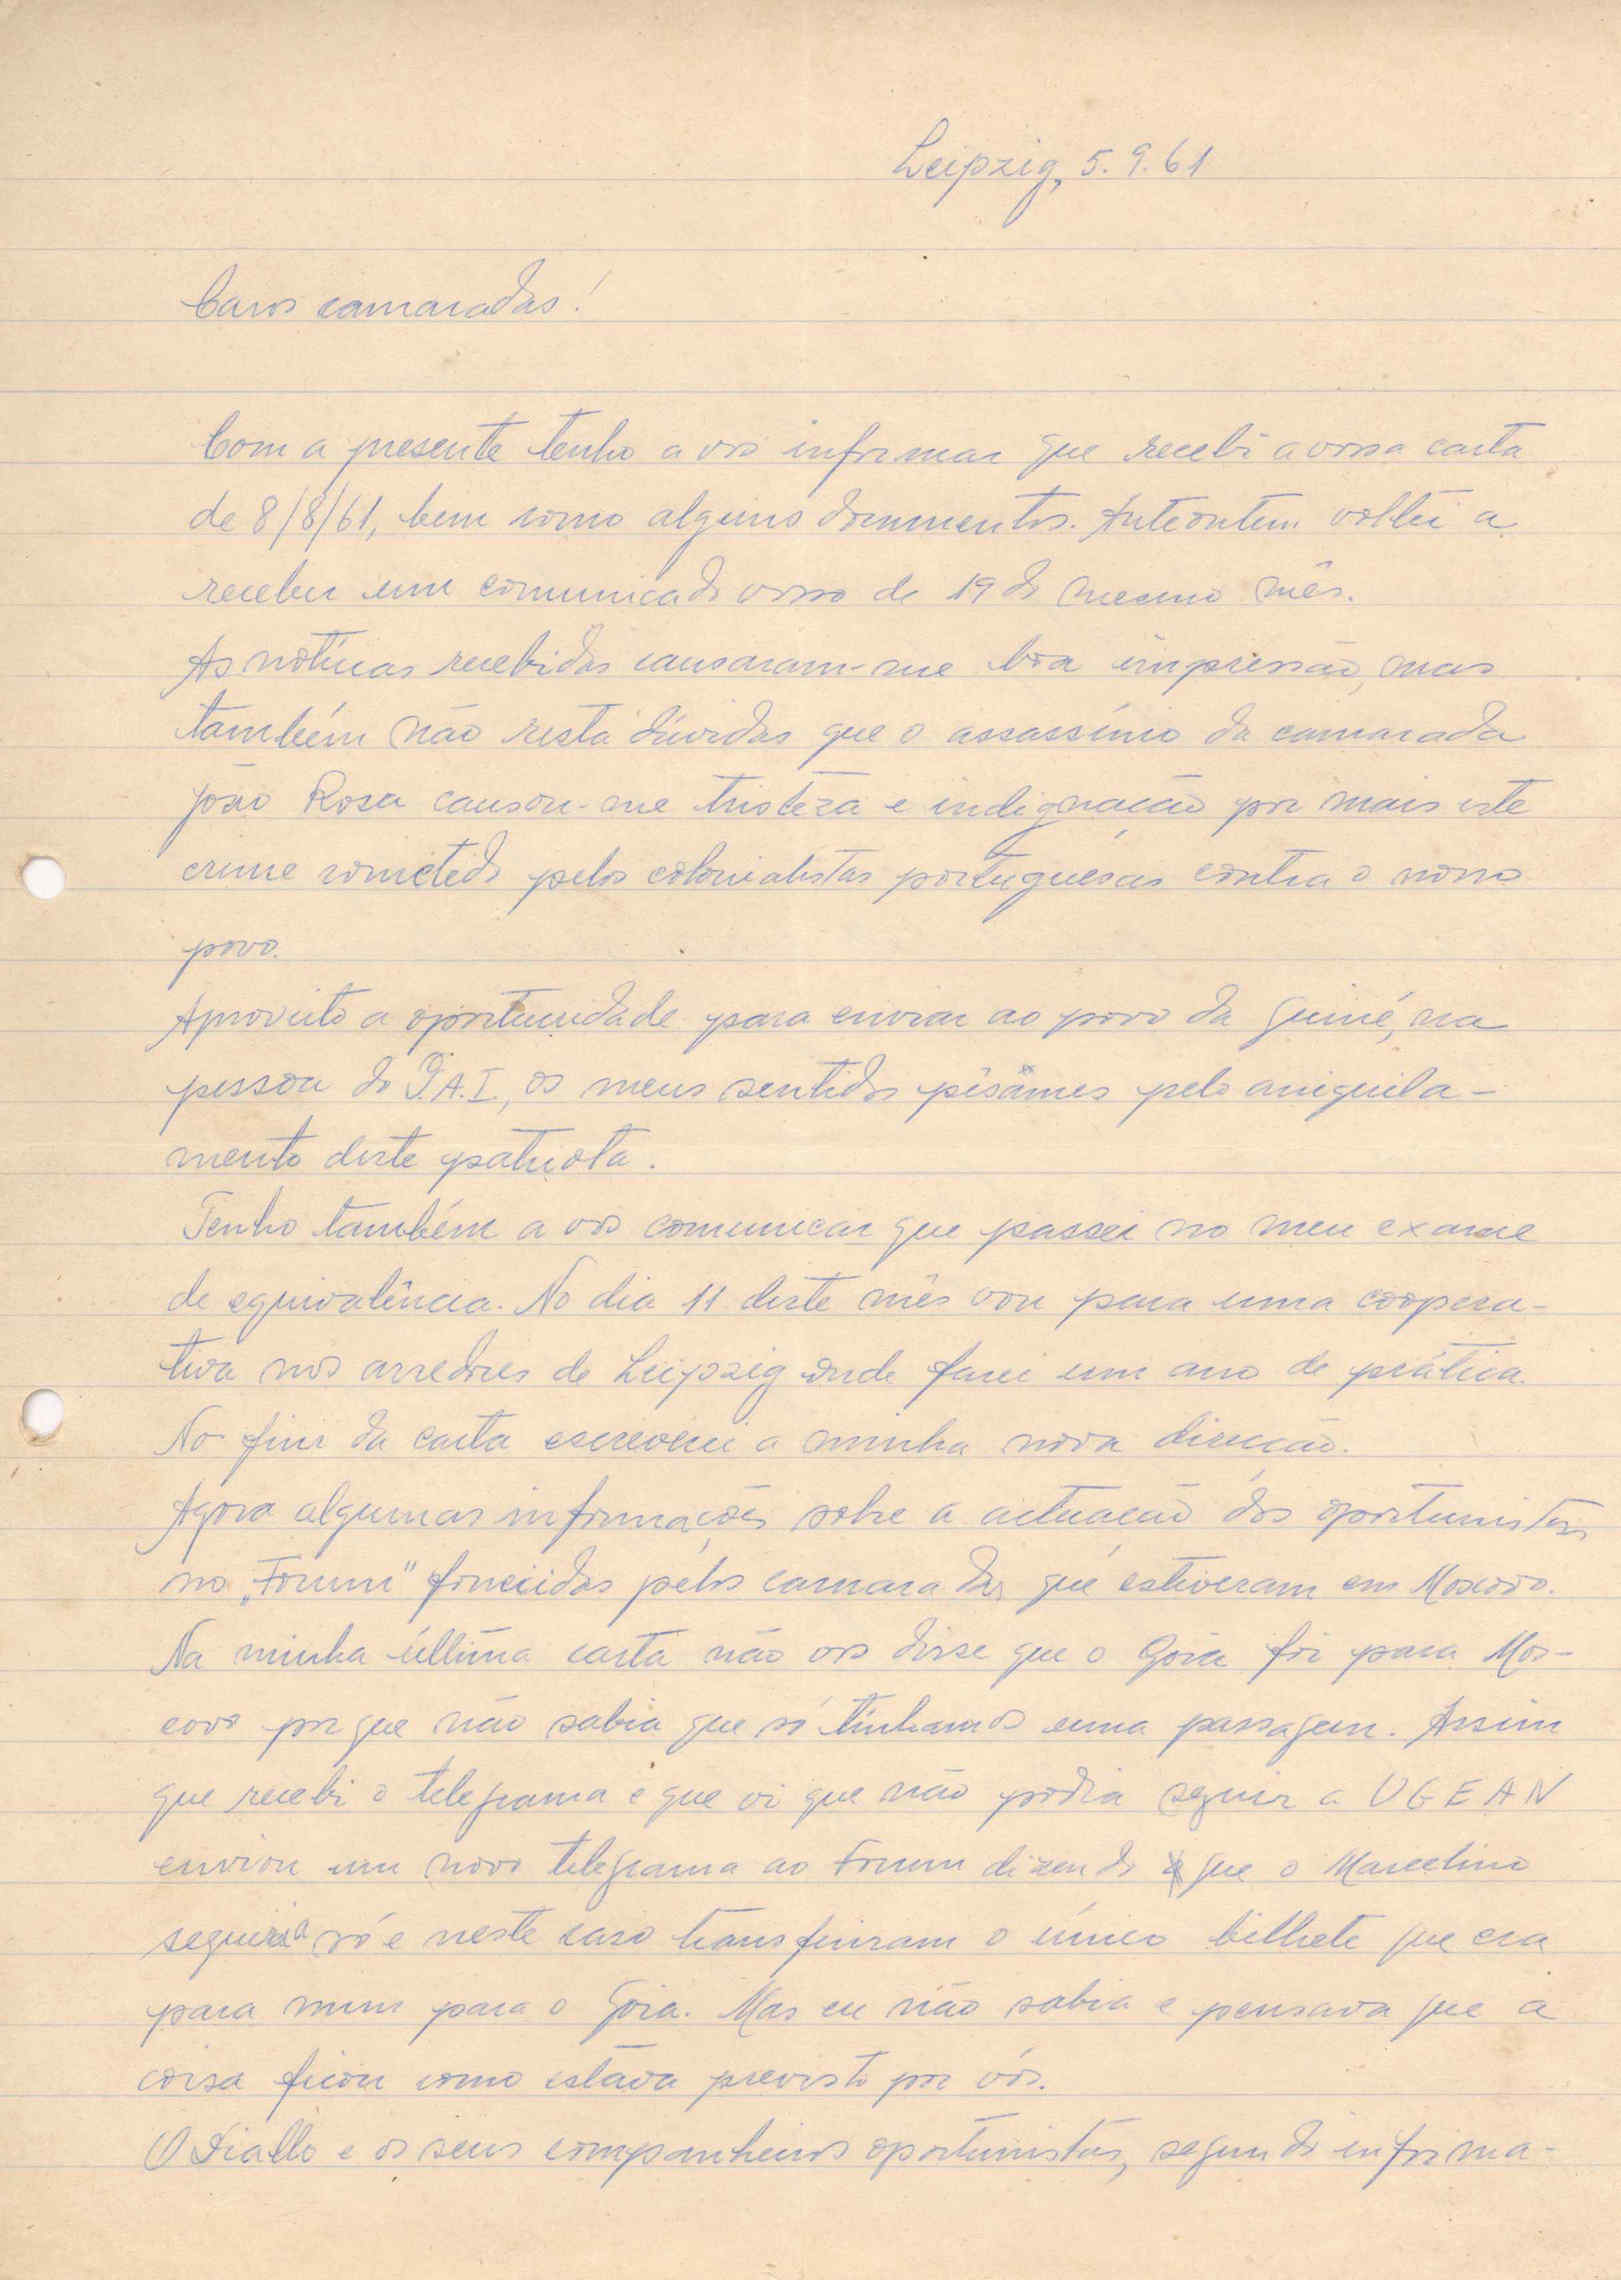 Leipzig, 5.9.61
Caros camaradas!
Com a presente tenho a vos informar que recebi a vossa carta
de 8/8/61, bem como alguns documentos. Anteontem voltei a
receber um comunicado vosso de 19 do mesmo mês.
As notícias recebidas causaram-me boa impressão, mas
também não resta dúvidas que o assassínio da camarada
João Rosa causou-me tristeza e indignação por mais este
crime cometido pelos colonialistas portugueses contra o nosso
povo.
Aproveito a oportunidade para enviar ao povo da Guiné, na
pessoa do P.A.I., os meus sentidos pêsâmes pelo aniquila-
mento deste patriota.
Tenho também a vos comunicar que passei no meu exame
de equivalência. No dia 11 deste mês vou para uma coopera-
tiva nos arredores de Leipzig onde farei um ano de prática.
No fim da carta escreverei a minha nova direcção.
Agora algumas informações sobre a actuação dos oportunistas
no „Forum" fornecidas pelos camaradas que estiveram em Moscovo.
Na minha última carta não vos disse que o Goia foi para Mos-
covo porque não sabia que só tínhamos uma passagem. Assim
que recebi o telegrama e que vi que não podia seguir a UGEAN
enviou um novo telegrama ao Forum dizendo que o Marcelino
seguiria só e neste caso transferiram o único bilhete que era
para mim para o Goia. Mas eu não sabia e pensava que a
coisa ficou como estava previsto por vós.
O Diallo e os seus companheiros oportunistas, segundo informa-